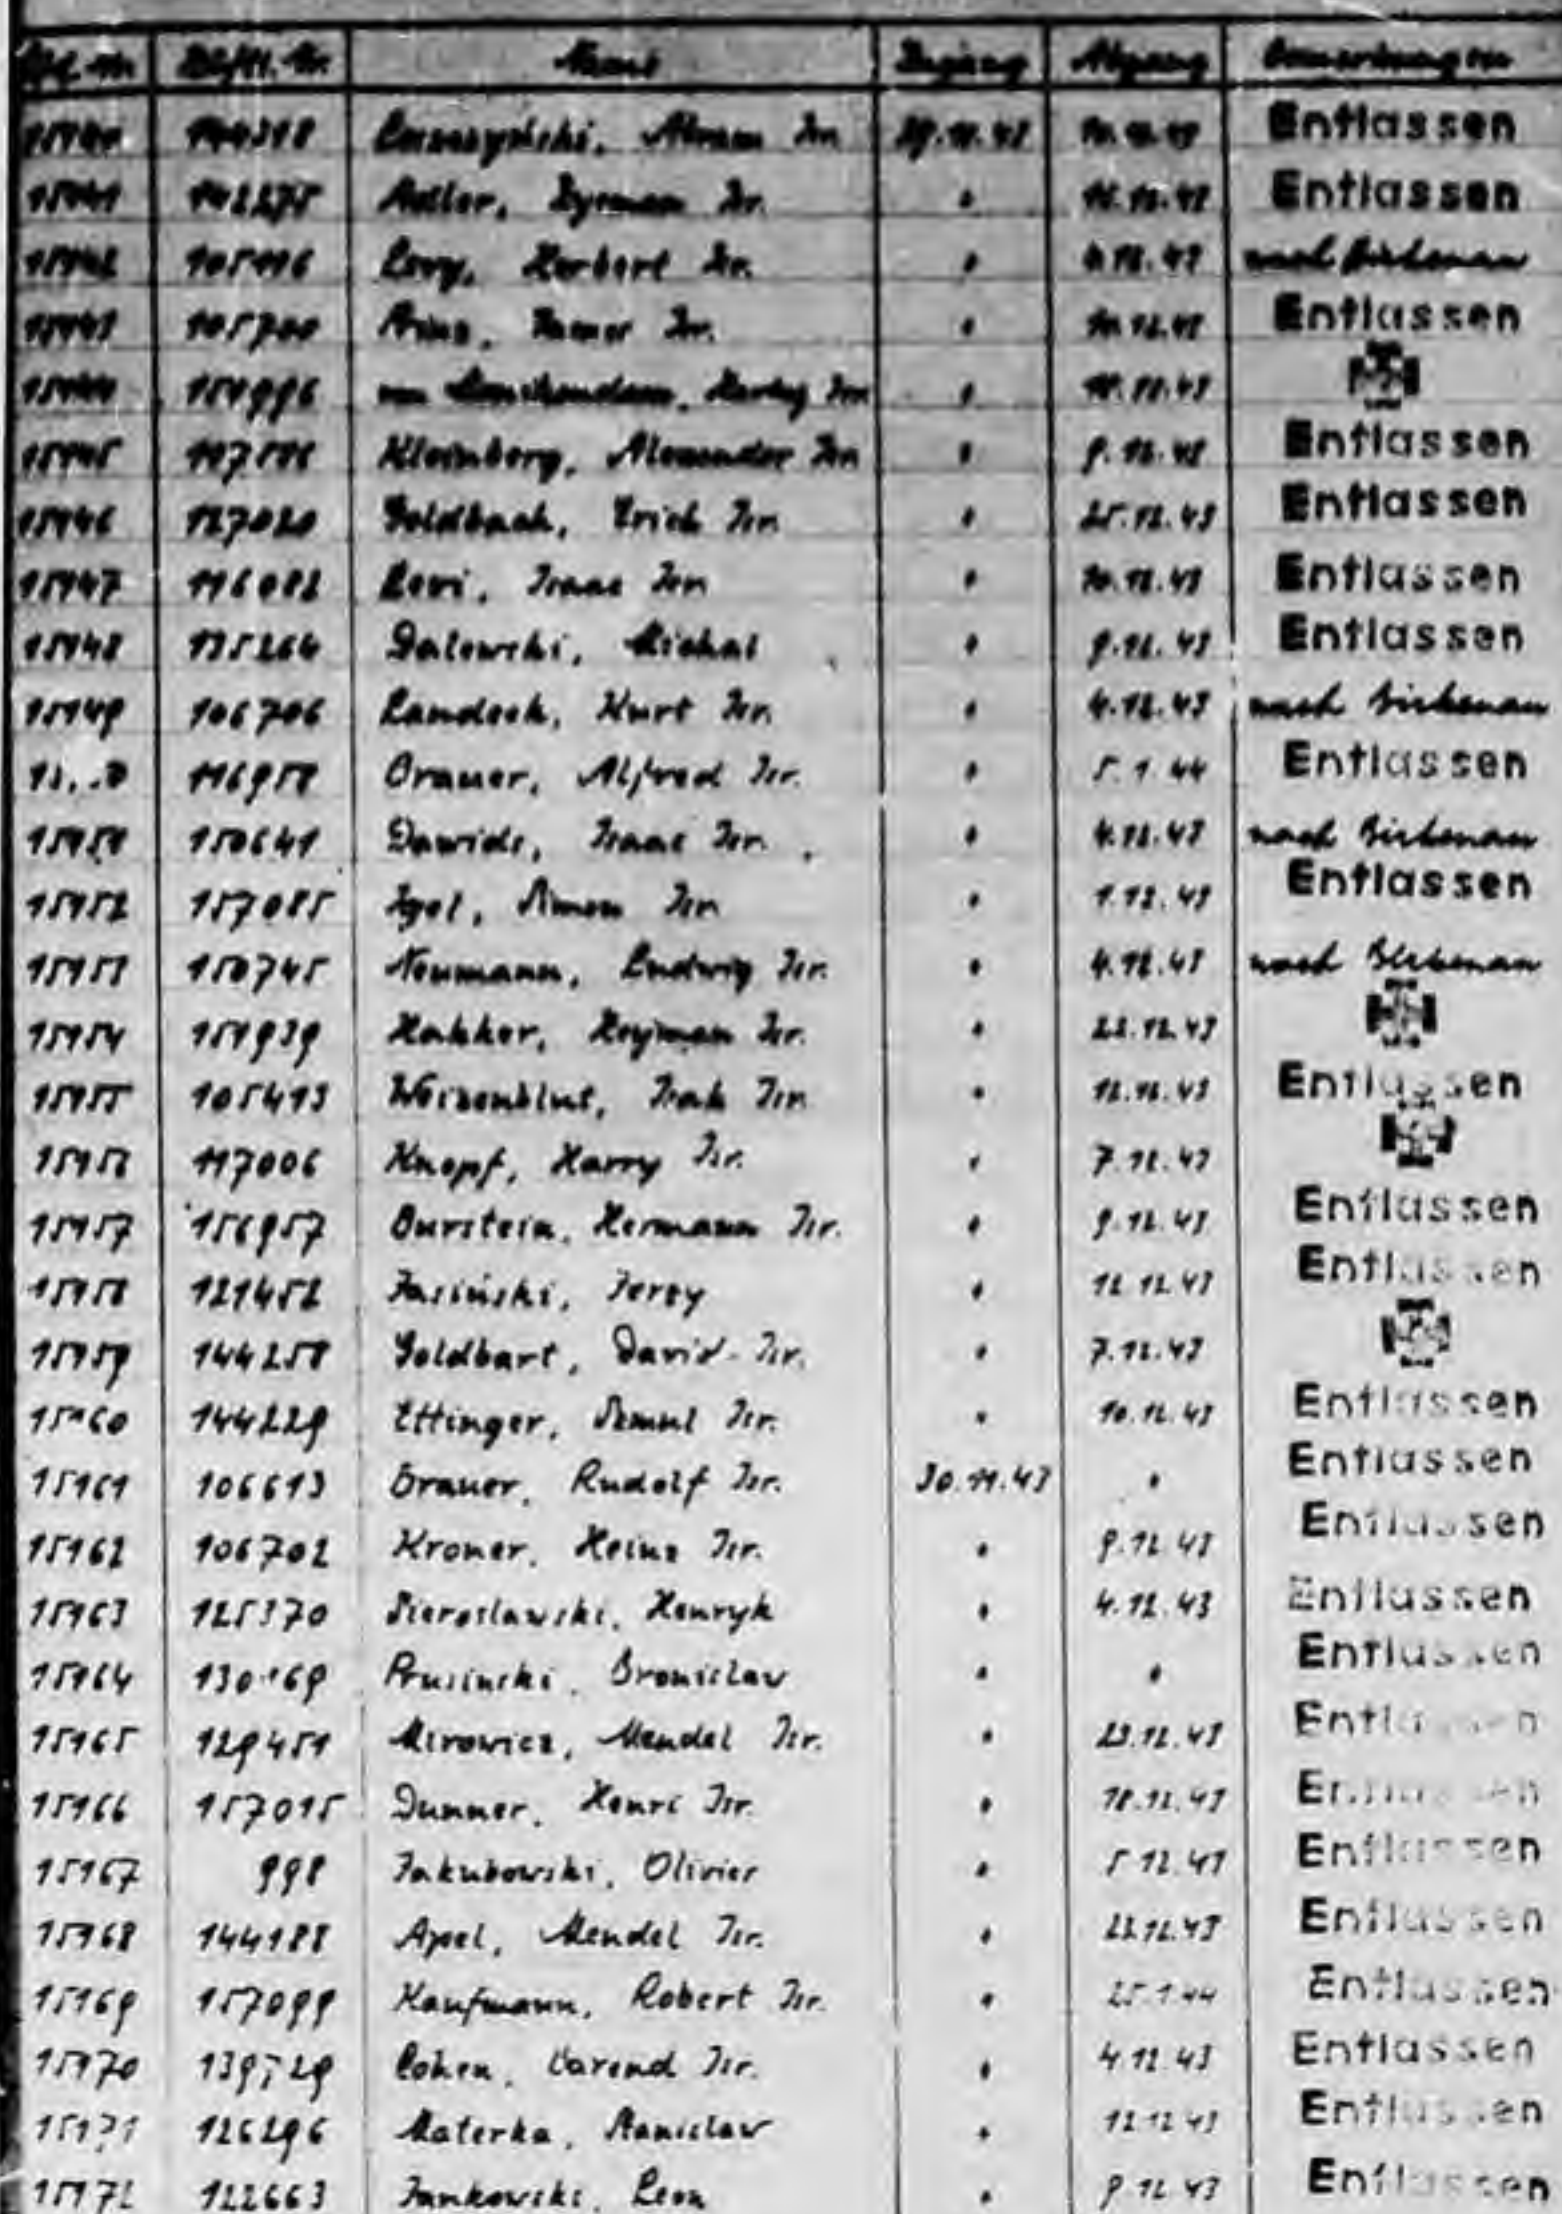 Lfd. Nr. Häftl. Nr. Name Zugang Abgang Bemerkungen
15140 144318 Abram Isr. 29.11.43 Entlassen
15141 142275 Adler, Isr. " Entlassen
15142 105116 Levy, Herbert Isr. " 4.12.43 nach Birkenau
15143 105700 Prinz, Isr. " 10.12.43 Entlassen
15144 151996 van Isr. "
15145 117511 Kleinberg, Alexander Isr. " 9.12.43 Entlassen
15146 127020 Goldbach, Erich Isr. " 25.12.43 Entlassen
15147 116082 Levi, Isaac Isr. " 10.12.43 Entlassen
15148 135264 Dalewski, Michal " 9.12.43 Entlassen
15149 106706 Landeck, Kurt Isr. " 4.12.43 nach Birkenau
116958 Brauer, Alfred Isr. " 5.1.44 Entlassen
15151 150641 Davids, Isaac Isr. " 4.12.43 nach Birkenau
15152 157085 Igel, Simon Isr. " 1.12.43 Entlassen
15153 150745 Neumann, Ludwig Isr. " 4.12.43 nach Birkenau
15154 151939 Hakker, Heyman Isr. " 22.12.43
15155 105413 Weizenblut, Isak Isr. " 12.12.43 Entlassen
15156 117006 Knopf, Harry Isr. " 7.12.43
15157 156957 Burstein, Hermann Isr. " 9.12.43 Entlassen
15158 121452 Jasiński, Jerzy " 12.12.43 Entlassen
15159 144258 Goldbart, David Isr. " 7.12.43
15160 144229 Ettinger, Samul Isr. " 10.12.43 Entlassen
15161 106613 Brauer, Rudolf Isr. 30.11.43 " Entlassen
15162 106702 Kroner, Heinz Isr. " 9.12.43 Entlassen
15163 125370 Sieroslawski, Henryk " 4.12.43 Entlassen
15164 130169 Prusinski, Bronislav " " Entlassen
15165 129451 Mirowicz, Mendel Isr. " 23.12.43 Entlassen
15166 157015 Dunner, Henri Isr. " 18.12.43 Entlassen
15167 998 Jakubowski, Olivier " 5.12.43 Entlassen
15168 144188 Apel, Mendel Isr. " 22.12.43 Entlassen
15169 157099 Kaufmann, Robert Isr. " 25.1.44 Entlassen
15170 139729 Cohen, Barend Isr. " 4.12.43 Entlassen
15171 126296 Materka, Stanislav " 12.12.43 Entlassen
15172 122663 Jankowski, Leon " 9.12.43 Entlassen